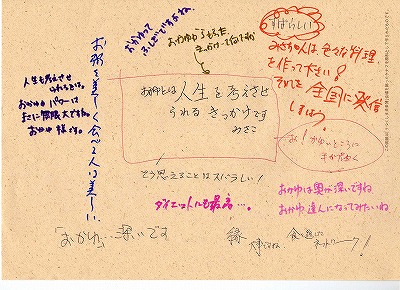 おかゆって
ふしぎですよね。
すばらしい
みさかんは色々な料理
を作って下さい！
そして全国に発信
しましょう
お粥を美しく食べる人は美しい
人生も考えさせ
られるなんて。
おかゆパワーは
まさに無限大ですね。
おかゆ様です。
おかゆとは人生を考えさせ
られるきっかけです
みさこ
お！かゆいところに
手がとどく
そう思えることはスバラしい！
ダイエットにも最高…。
おかゆは奥が深いですね
おかゆ達人になってみたいね
「おかゆ」…深いです
縁
大事だね、
食を通した
ネットワーク！